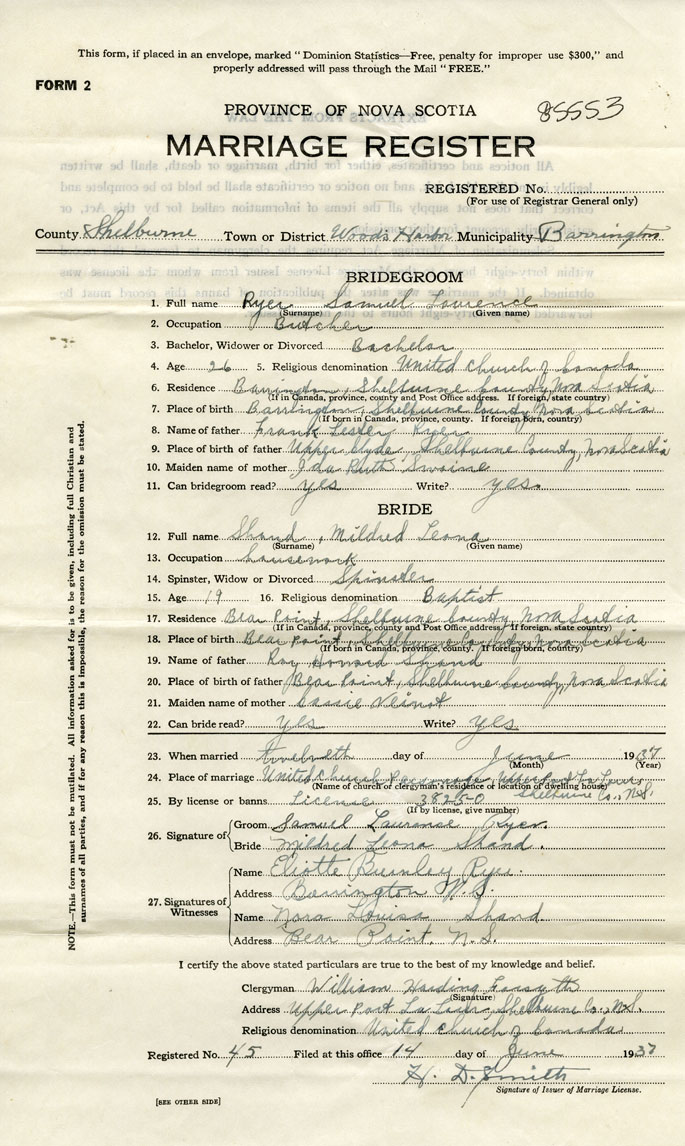 This form, if placed in an envelope, marked "Dominion Statistics—Free, penalty for improper use $300," and
properly addressed will pass through the Mail "FREE."
FORM 2
PROVINCE OF NOVA SCOTIA 85553
MARRIAGE REGISTER
REGISTERED No.
(For use of Registrar General only)
County Shelburne Town or District Woods Harbor Municipality Barrington
BRIDEGROOM
1. Full name Ryer Samuel Lawrence
(Surname) (Given name)
2. Occupation Butcher
3. Bachelor, Widower or Divorced Bachelor
4. Age 26 5. Religious denomination United Church of Canada
6. Residence Barrington, Shelburne County, Nova Scotia
(If in Canada, province, county and Post Office address. If foreign, state country)
7. Place of birth Barrington, Shelburne County, Nova Scotia
(If born in Canada, province, county. If foreign born, country)
8. Name of father Frank Lesley Ryer
9. Place of birth of father Upper Clyde, Shelburne County, Nova Scotia
10. Maiden name of mother Ida Ruth Swaine
11. Can bridegroom read? yes Write? yes.
BRIDE
12. Full name Shand, Mildred Leona
(Surname) (Given name)
13. Occupation housework
14. Spinster, Widow or Divorced Spinster
15. Age 19 16. Religious denomination Baptist
17. Residence Bear Point, Shelburne County, Nova Scotia
(If in Canada, province, county and Post Office address. If foreign, state country)
18. Place of birth Bear Point, Shelburne County, Nova Scotia
(If born in Canada, province, county. If foreign born, country)
19. Name of father Roy Howard Shand
20. Place of birth of father Bear Point, Shelburne County, Nova Scotia
21. Maiden name of mother Cassie Veinot
22. Can bride read? yes Write? yes.
23. When married twelveth day of June 1937
(Month) (Year)
24. Place of marriage United Church Parsonage, Upper Port La Tour,
(Name of church or clergyman's residence or location of dwelling house)
Shelburne Co., N.S.
25. By license or banns License 38250
(If by license, give number)
26. Signature of
Groom Samuel Laurence Ryer.
Bride Mildred Leona Shand.
27. Signatures of Witnesses
Name Eliotte Burnley Ryer.
Address Barrington N.S.
Name Nora Louisa Shand
Address Bear Point, N.S.
I certify the above stated particulars are true to the best of my knowledge and belief.
Clergyman William Harding Forsyth
(Signature)
Address Upper Port La Tour, Shelburne Co., N.S.
Religious denomination United Church of Canada
Registered No. 45 Filed at this office 14 day of June 1937
H. D. Smith
Signature of Issuer of Marriage License.
[SEE OTHER SIDE]
NOTE.—This form must not be mutilated. All information asked for is to be given, including full Christian and
surnames of all parties, and if for any reason this is impossible, the reason for the omission must be stated.